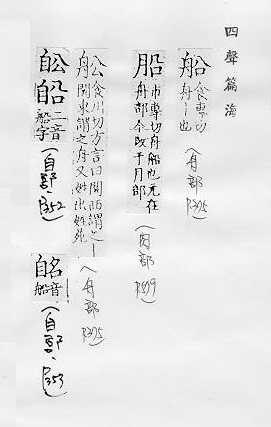 四聲篇海
船 食專切
舟〡也
(舟部 P.375)
船 市專切舟船也元在
舟部今改于月部
(肉部
舩 食川切方言曰關西謂之〡
關東謂之舟又姓出姓苑
(舟部 P.375)
二音
船字
(自部 P.352)
船音
(自部 P.353)